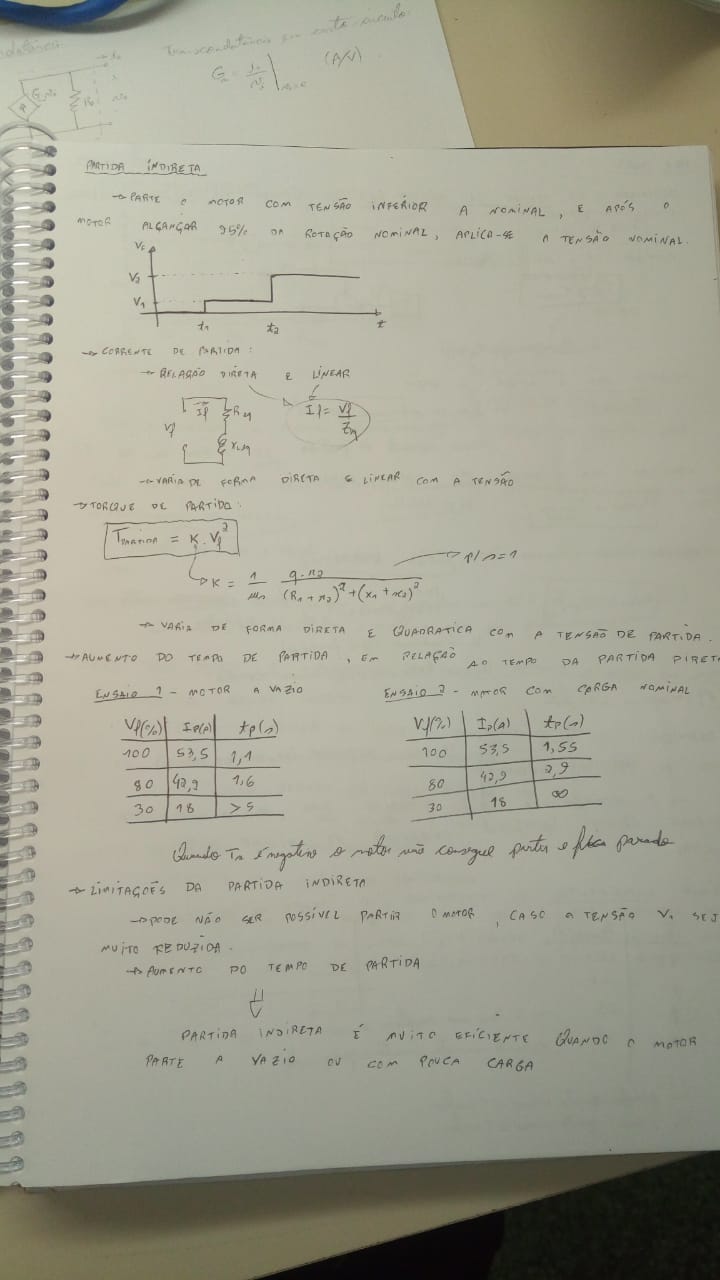 Transcondutância em curto circuito
Gm = io/vs | vo=0 (A/V)
Gm vs Ro vo
PARTIDA INDIRETA
→ PARTE O MOTOR COM TENSÃO INFERIOR A NOMINAL, E APÓS O
MOTOR ALCANÇAR 95% DA ROTAÇÃO NOMINAL, APLICA-SE A TENSÃO NOMINAL.
Vf
V2
V1
t1 t2 t
→ CORRENTE DE PARTIDA:
→ RELAÇÃO DIRETA E LINEAR
Vf If Req XLeq If = Vf/Zeq
→ VARIA DE FORMA DIRETA E LINEAR COM A TENSÃO
→ TORQUE DE PARTIDA:
TPARTIDA = K . Vf²
→ K = 1/ws q.r2/((R1 + r2)² + (x1 + x2)²) → p/ s=1
→ VARIA DE FORMA DIRETA E QUADRATICA COM A TENSÃO DE PARTIDA.
→ AUMENTO DO TEMPO DE PARTIDA, EM RELAÇÃO AO TEMPO DA PARTIDA DIRETA
ENSAIO 1 - MOTOR A VAZIO
Vf(%) Ip(A) tp(s)
100 53,5 1,1
80 42,9 1,6
30 18 >5
ENSAIO 2 - MOTOR COM CARGA NOMINAL
Vf(%) Ip(A) tp(s)
100 53,5 1,55
80 42,9 2,9
30 18 ∞
Quando Ta é negativo o motor não consegue partir e fica parado
→ LIMITAÇOES DA PARTIDA INDIRETA
→ PODE NÃO SER POSSÍVEL PARTIR O MOTOR, CASO A TENSÃO V1 SEJ
MUITO REDUZIDA.
→ AUMENTO DO TEMPO DE PARTIDA
⇓
PARTIDA INDIRETA É MUITO EFICIENTE QUANDO O MOTOR
PARTE A VAZIO OU COM POUCA CARGA